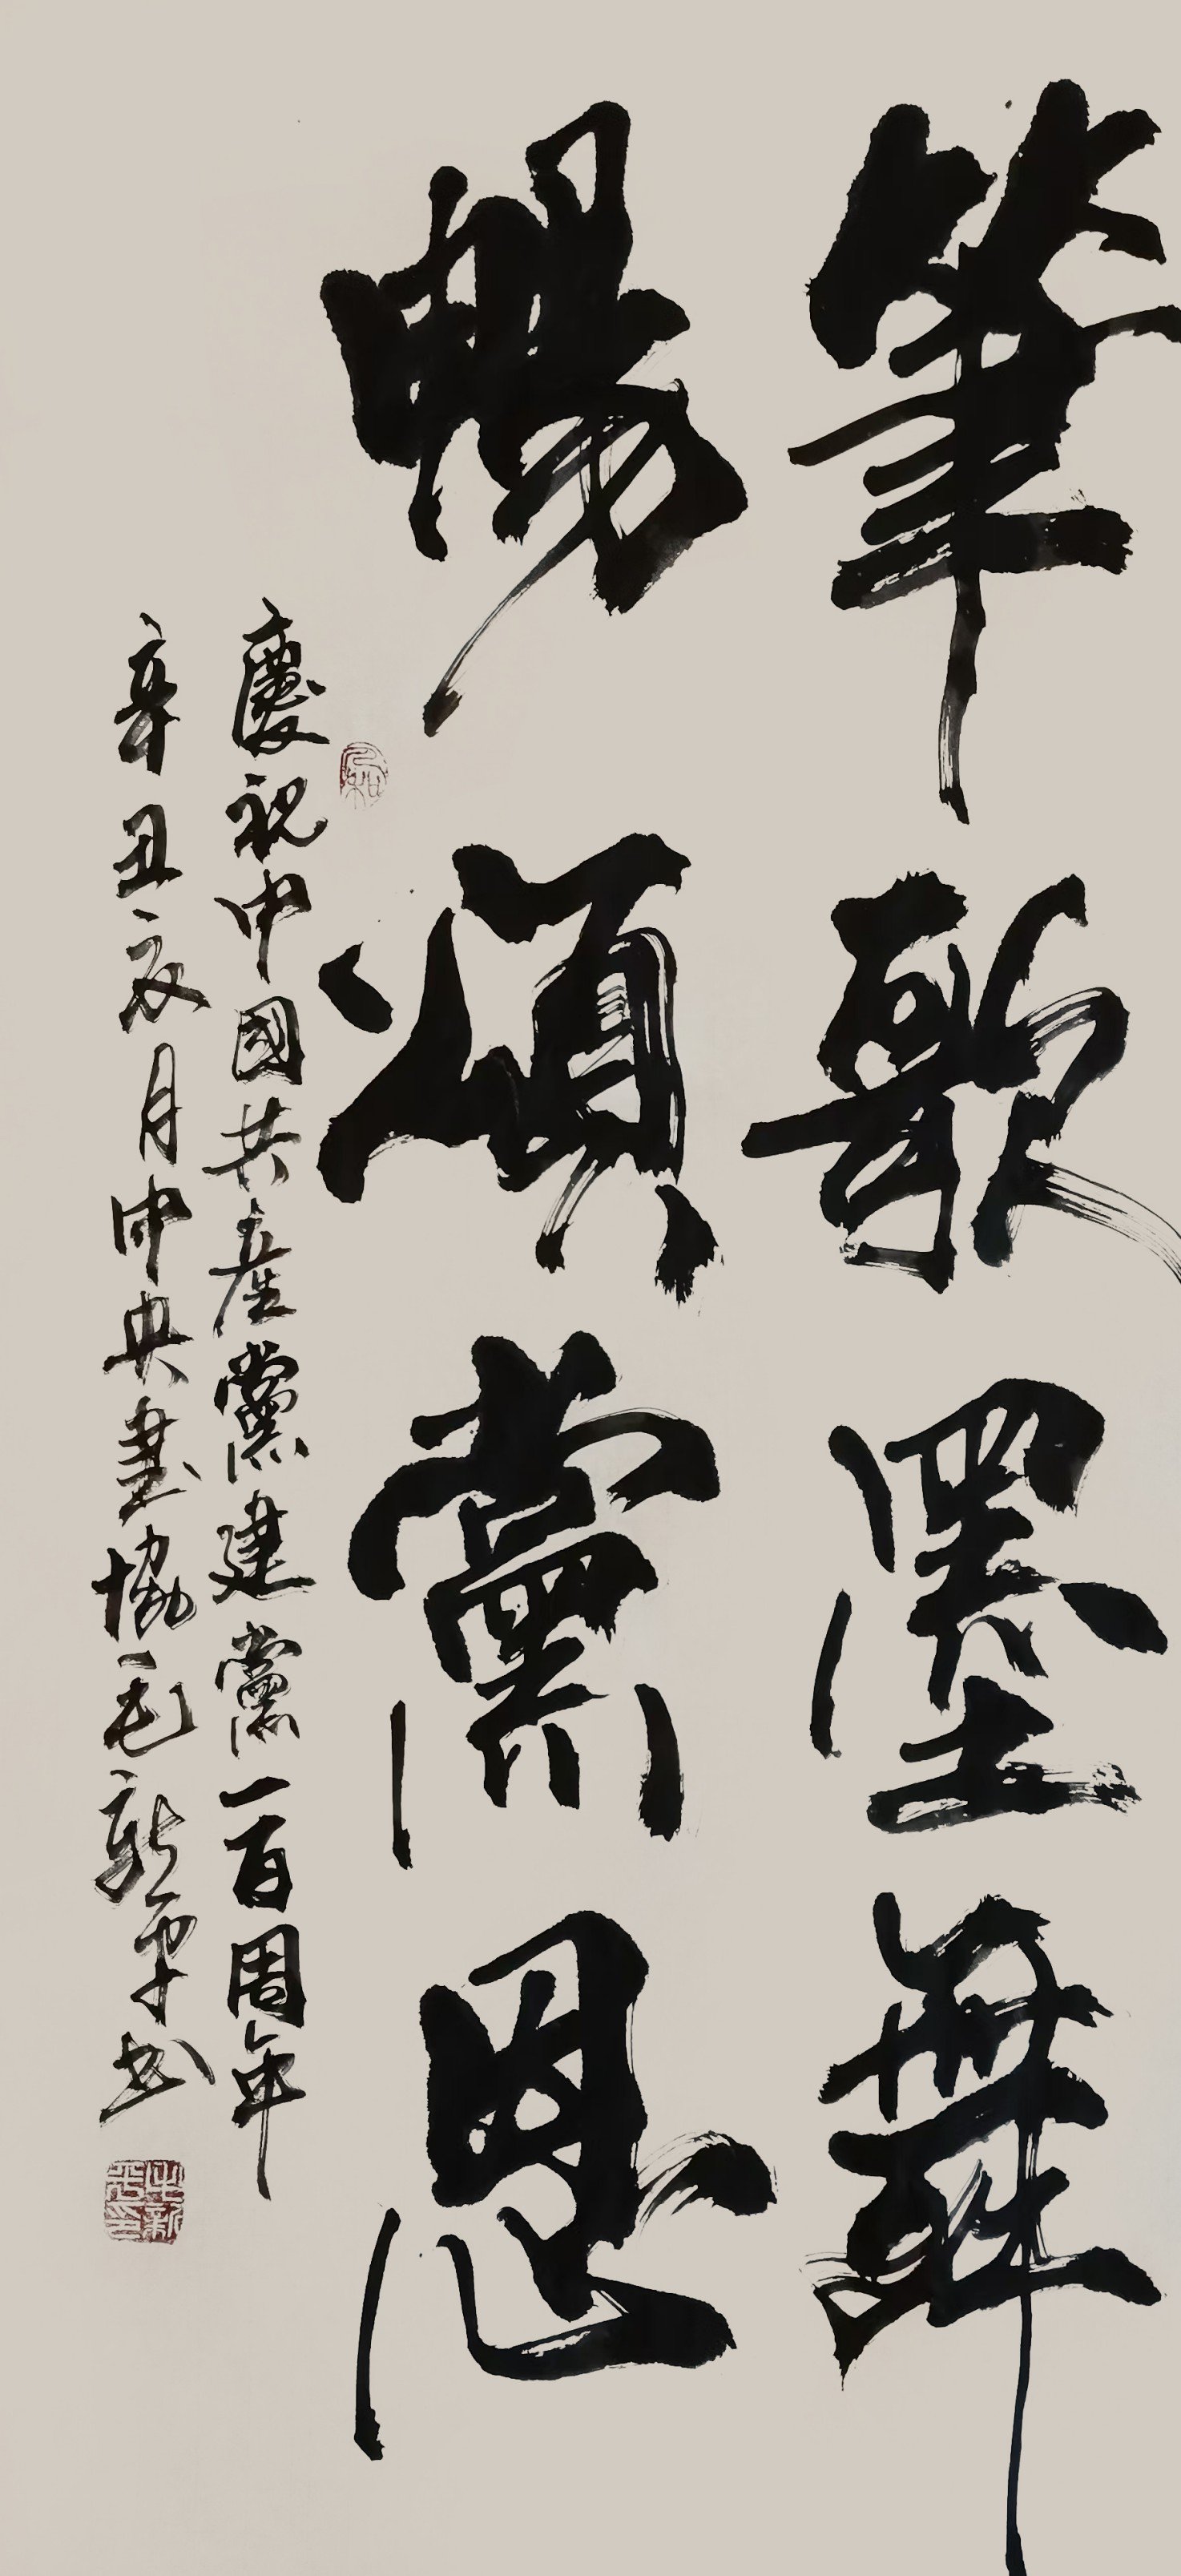 筆歌墨舞
暢頌黨恩
慶祝中國共產黨建黨一百周年
辛丑亥月中央書協毛新平書